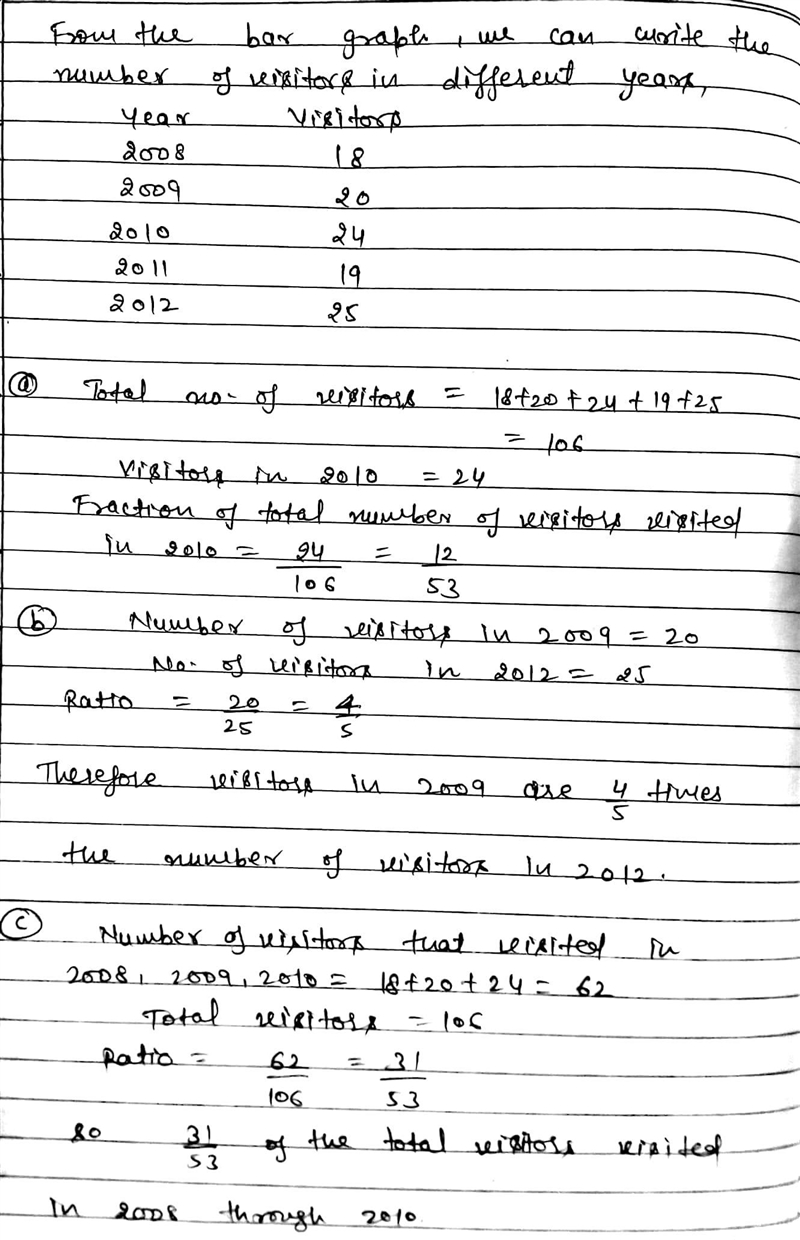 From the bar graph, we can write the
number of visitors in different years,
Year Visitors
2008 18
2009 20
2010 24
2011 19
2012 25
(a) Total no. of visitors = 18+20+24+19+25
= 106
Visitors in 2010 = 24
Fraction of total number of visitors visited
in 2010 = 24/106 = 12/53
(b) Number of visitors in 2009 = 20
No. of visitors in 2012 = 25
Ratio = 20/25 = 4/5
Therefore visitors in 2009 are 4/5 times
the number of visitors in 2012.
(c) Number of visitors that visited in
2008, 2009, 2010 = 18+20+24 = 62
Total visitors = 106
Ratio = 62/106 = 31/53
so 31/53 of the total visitors visited
in 2008 through 2010.